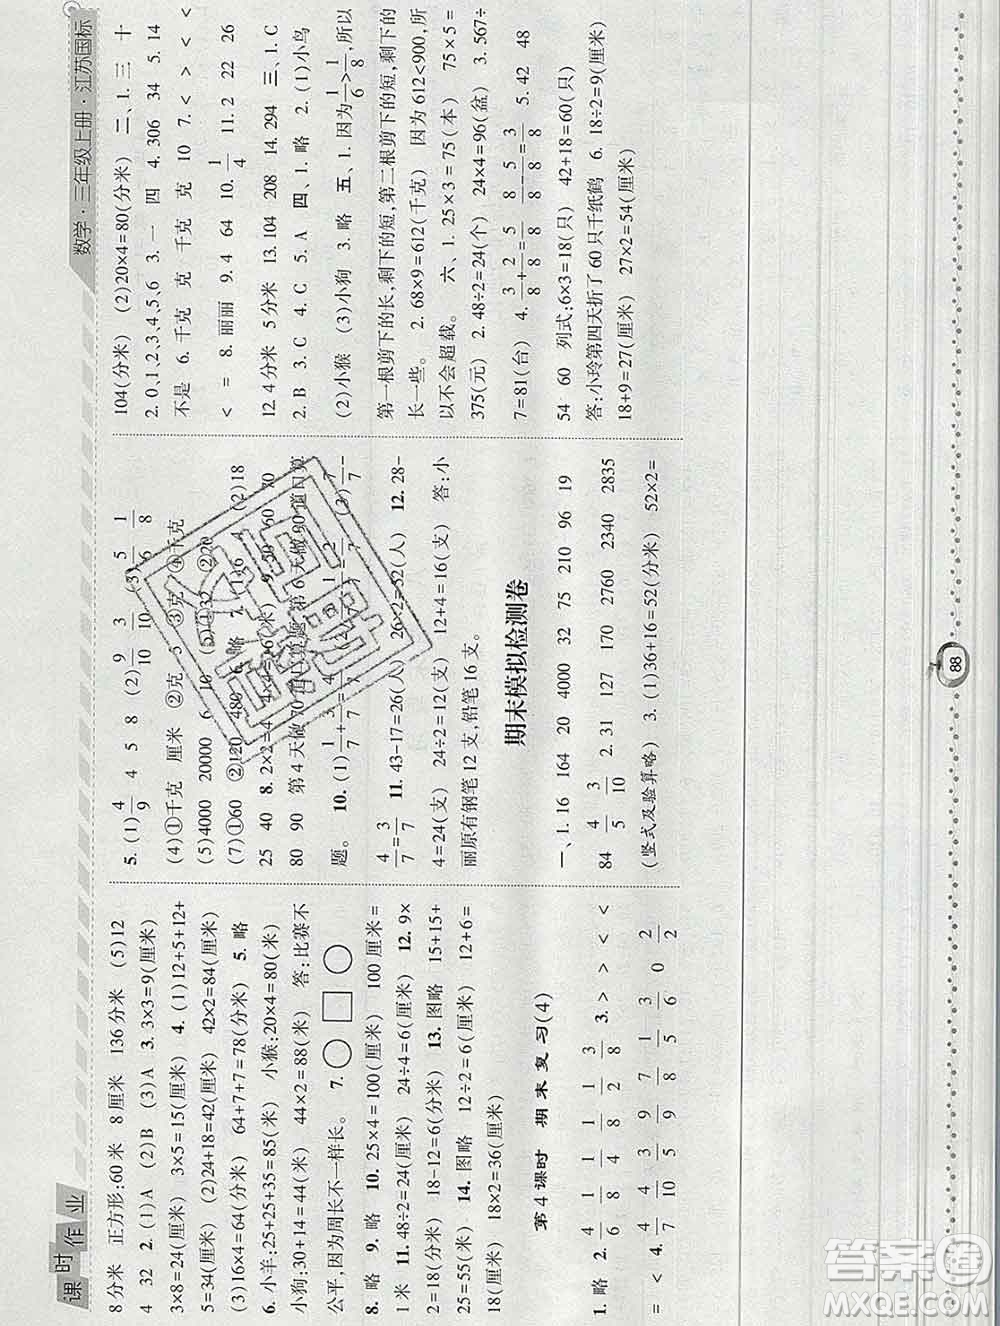 课时作业
数学·三年级上册·江苏国标
8分米 正方形:60米 8厘米 136分米 (5)12
4 32 2.(1)A (2)B (3)A 3.3×3=9(厘米)
3×8=24(厘米) 3×5=15(厘米) 4.(1)12+5+12+
5=34(厘米) (2)24+18=42(厘米) 42×2=84(厘米)
(3)16×4=64(分米) 64+7+7=78(分米) 5.略
6.小羊:25+25+35=85(米) 小猴:20×4=80(米)
小狗:30+14=44(米) 44×2=88(米) 答:比赛不
公平,因为周长不一样长。 7.○ □ ○
8.略 9.略 10.25×4=100(厘米) 100厘米=
1米 11.48÷2=24(厘米) 24÷4=6(厘米) 12.9×
2=18(分米) 18-12=6(分米) 13.图略 15+15+
25=55(米) 14.图略 12÷2=6(厘米) 12+6=
18(厘米) 18×2=36(厘米)
第4课时 期末复习(4)
1.略 2.4/6 1/8 1/4 1/8 1/2 3/8 3.> > < <
= < 4.4/7 4/10 3/5 9/9 7/8 1/5 3/6 0 2/2
5.(1)4/9 4 5 8 (2)9/10 3/10 (3)5/6 1/8
(4)①千克 厘米 ②克 5 ③克 ④千克
(5)4000 20000 6 10 ①32 ②20
(7)①60 ②120 480 6.略 7.(1)6 4 (2)18
25 40 8.2×2=4 4×4=16(米) 9.50 60 70
80 90 第4天做70道口算题,第6天做90道口算
题。 10.(1)1/7+3/7=4/7
4/7=3/7 11.43-17=26(人) 26×2=52(人) 12.28-
4=24(支) 24÷2=12(支) 12+4=16(支) 答:小
丽原有钢笔12支,铅笔16支。
期末模拟检测卷
一、1.16 164 20 4000 32 75 210 96 19
84 4/5 3/10 2.31 127 170 2760 2340 2835
(竖式及验算略) 3.(1)36+16=52(分米) 52×2=
104(分米) (2)20×4=80(分米) 二、1.三 十
2.0,1,2,3,4,5,6 3.一 四 4.306 34 5.14
不是 6.千克 克 千克 克 10 7.< > < <
< = 8.丽丽 9.4 64 10.1/4 11.2 22 26
12.4分米 5分米 13.104 208 14.294 三、1.C
2.B 3.C 4.C 5.A 四、1.略 2.(1)小鸟
(2)小猴 (3)小狗 3.略 五、1.因为1/6>1/8,所以
第一根剪下的长,剩下的短,第二根剪下的短,剩下的
长一些。 2.68×9=612(千克) 因为612<900,所
以不会超载。 六、1.25×3=75(本) 75×5=
375(元) 2.48÷2=24(个) 24×4=96(盆) 3.567÷
7=81(台) 4.3/8+2/8=5/8 8/8-5/8=3/8 5.42 48
54 60 列式:6×3=18(只) 42+18=60(只)
答:小玲第四天折了60只千纸鹤 6.18÷2=9(厘米)
18+9=27(厘米) 27×2=54(厘米)
88
答案圈
MXQE.COM